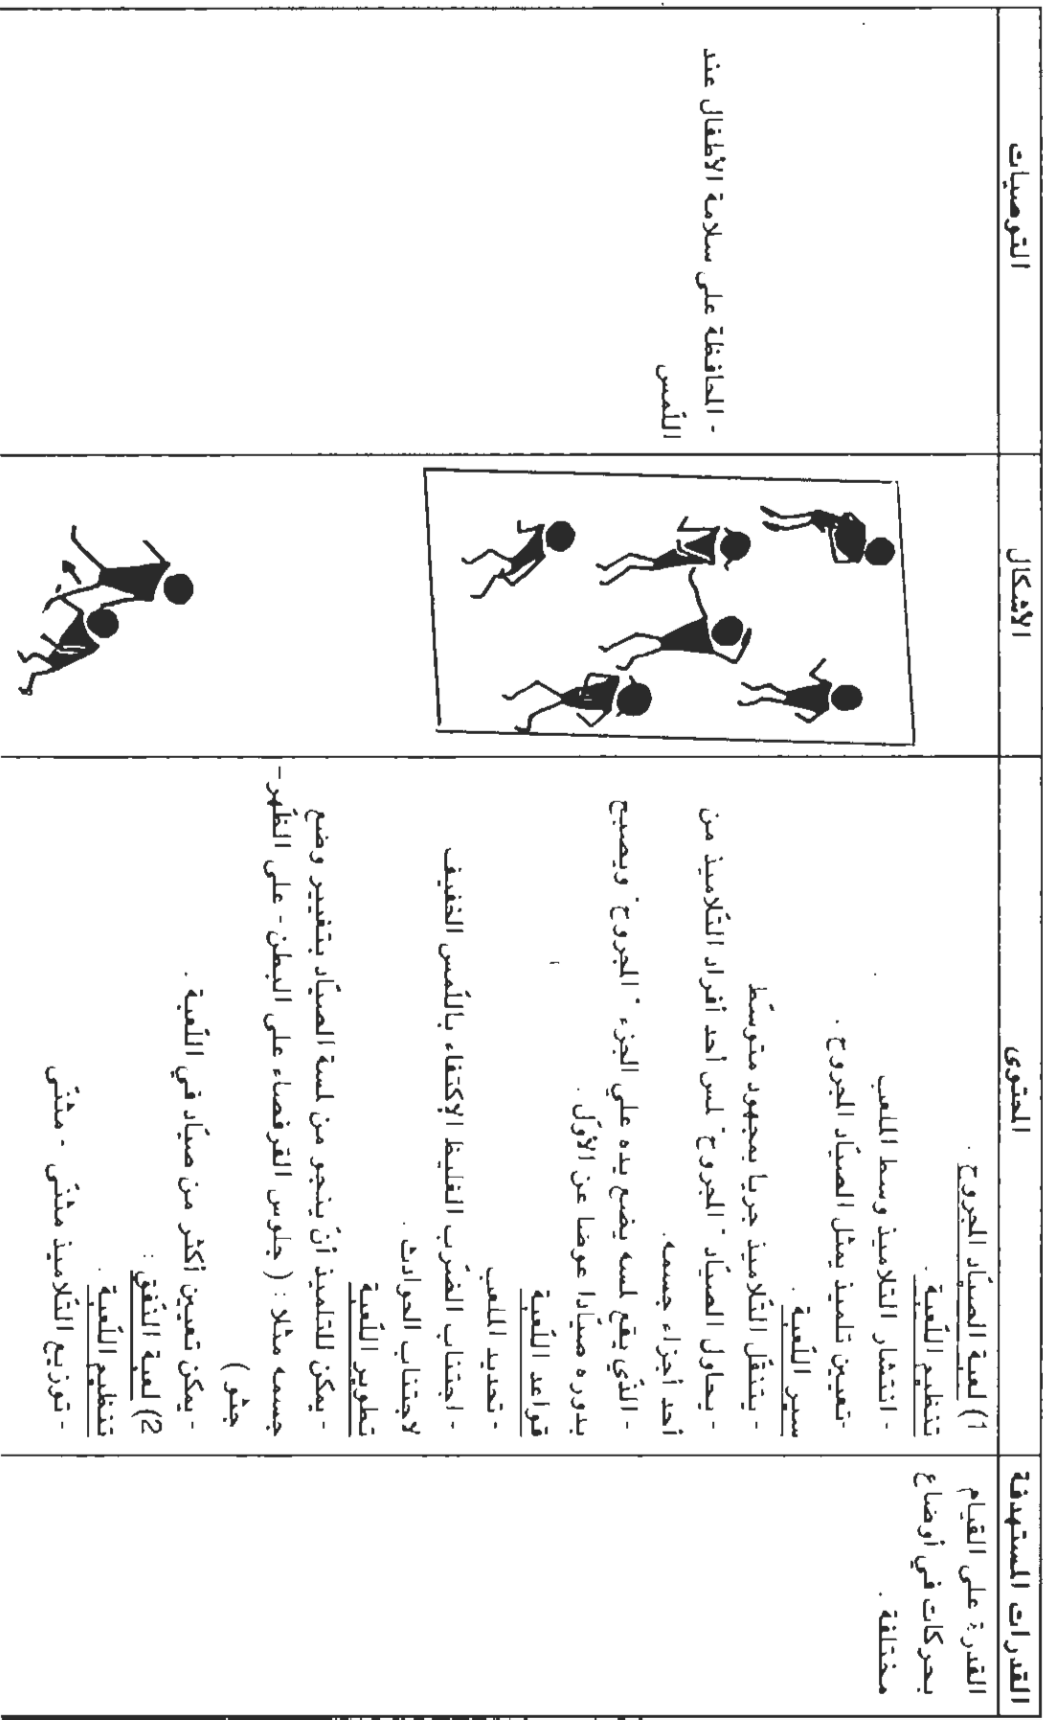 القدرات المستهدفة
المحتوى
الأشكال
التوصيات
القدرة على القيام
بحركات في أوضاع
مختلفة .
1) لعبة الصيّاد المجروح .
تنظيم اللّعبة .
- انتشار التلاميذ وسط الملعب
-تعيين تلميذ يمثل الصيّاد المجروح .
سير اللّعبة .
- يتنقل التّلاميذ جريا بمجهود متوسّط
- يحاول الصيّاد " المجروح" لمس أحد أفراد التّلاميذ من
أحد أجزاء جسمه.
- الّذي يقع لمسه يضع يده علي الجزء " المجروح" ويصبح
بدوره صيّادا عوضا عن الأوّل .
قواعد اللّعبة
- تحديد الملعب
- اجتناب الضّرب الغليظ الإكتفاء باللّمس الخفيف
لاجتناب الحوادث .
تطوير اللّعبة
- يمكن للتلميذ أنْ ينجو من لمسة الصيّاد بتغيير وضع
جسمه مثلا : ( جلوس القرفصاء على البطن - على الظّهر-
جثو )
- يمكن تعيين أكثر من صيّاد في اللّعبة .
2) لعبة النّفق :
تنظيم اللّعبة .
- توزيع التّلاميذ مثنّى - مثنّى
- المحافظة على سلامة الأطفال عند
اللّمس